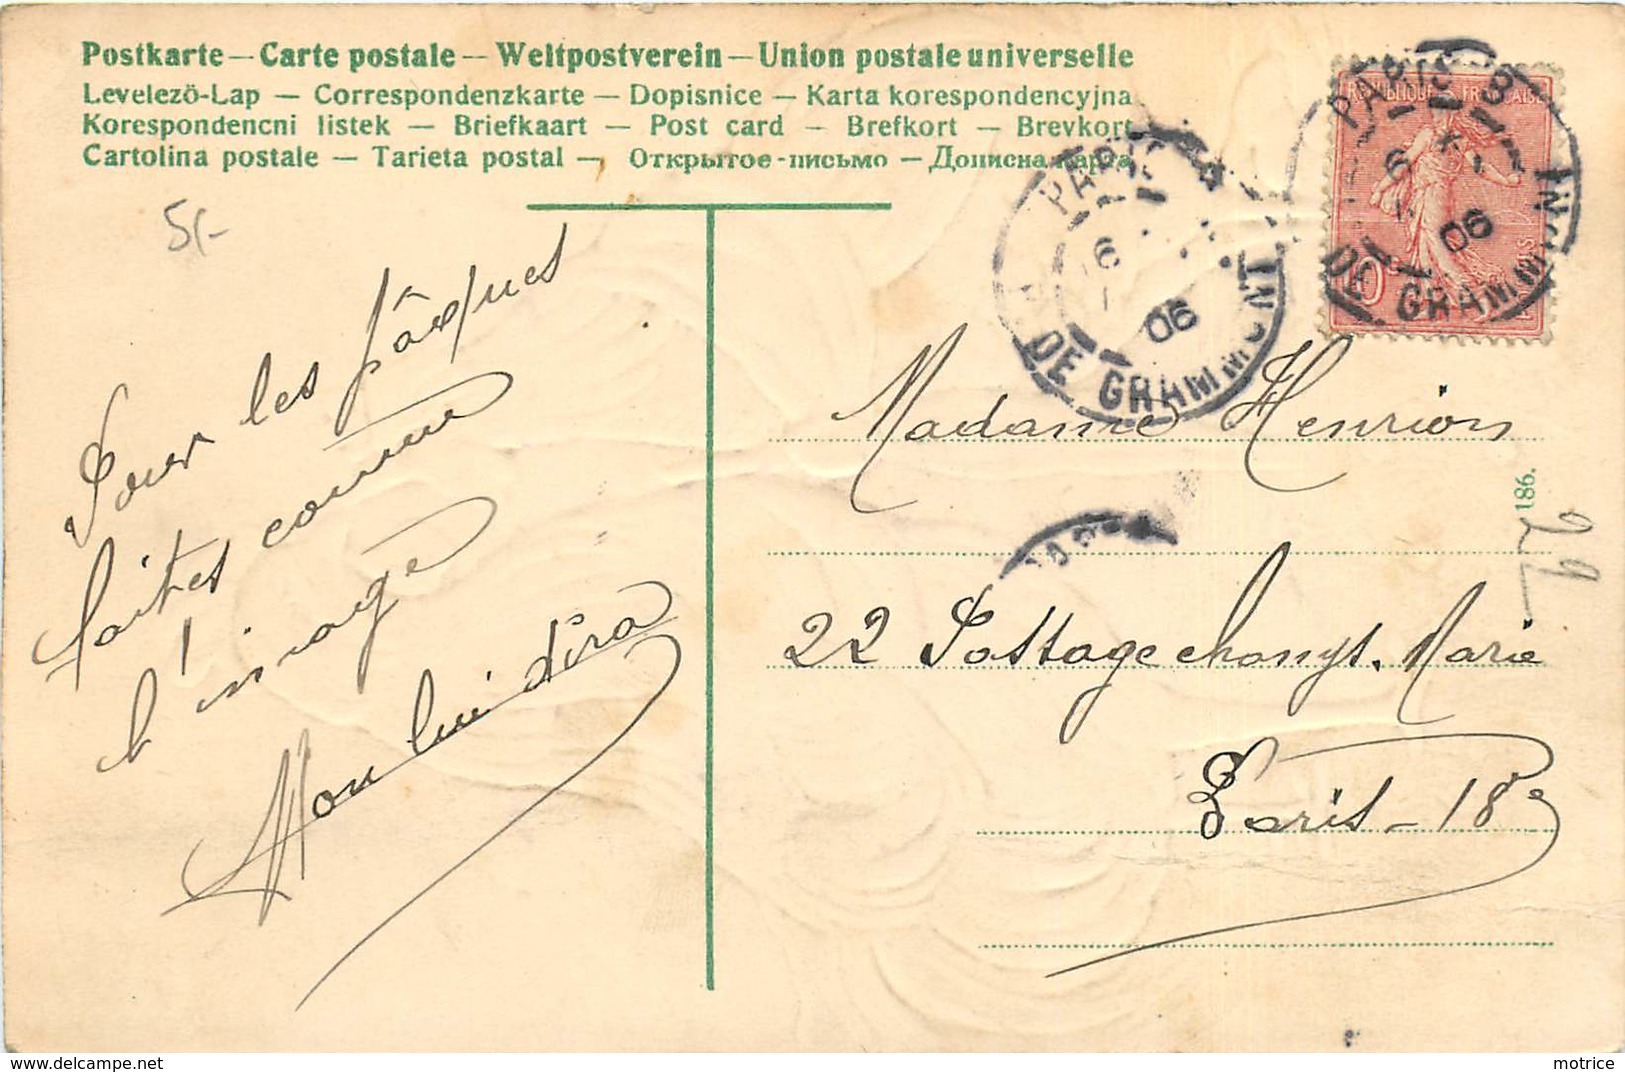 Postkarte — Carte postale — Weltpostverein — Union postale universelle
Levelező-Lap — Correspondenzkarte — Dopisnice — Karta korespondencyjna
Korespondencni listek — Briefkaart — Post card — Brefkort — Brevkort
Cartolina postale — Tarieta postal — Открытое-письмо — Дописна карта
5/-
Pour les pâques
faites comme
l'image
Mon lui dira
REPUBLIQUE FRANÇAISE
PARIS
6
06
DE GRAMMONT
PARIS
6
06
DE GRAMMONT
Madame Henrion
186.
29
22 Passage
Marie
Paris - 18e
motrice